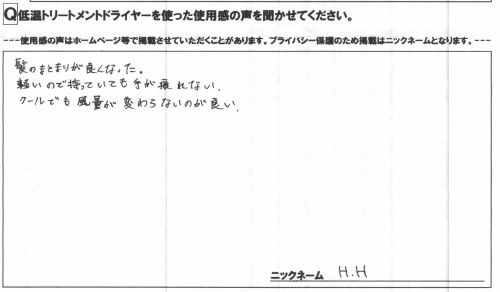 Q低温トリートメントドライヤーを使った使用感の声を聞かせてください。
---使用感の声はホームページ等で掲載させていただくことがあります。プライバシー保護のため掲載はニックネームとなります。---
髪のまとまりが良くなった。
軽いので持っていても手が疲れない.
クールでも風量が変わらないのが良い.
ニックネーム H.H